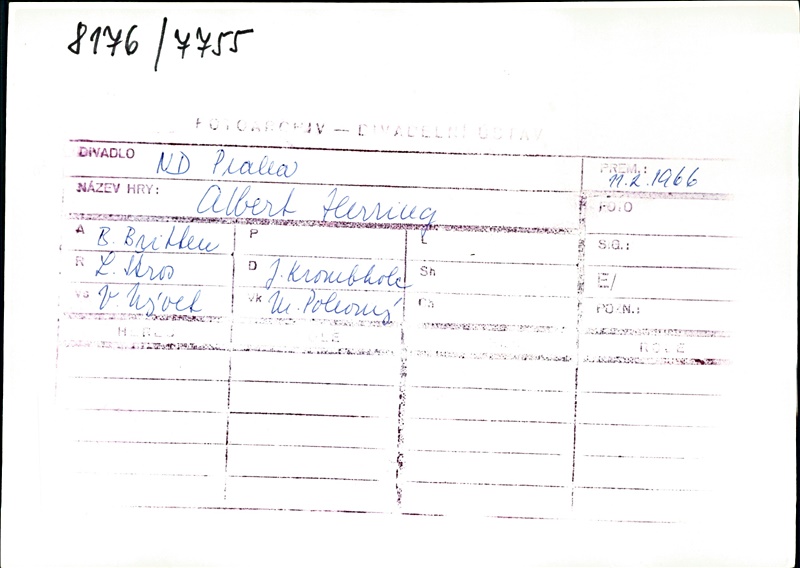 8176/7755
FOTOARCHIV — DIVADELNÍ ÚSTAV
DIVADLO ND Praha PREM.: 11.2.1966
NÁZEV HRY: Albert Herring FOTO
A B. Britten P L S.G.:
R L. Štros D J. Krombholc Sh E/
Vs V. Nývlt Vk M. Pokorný Ch POZN.:
HEREC ROLE ROLE